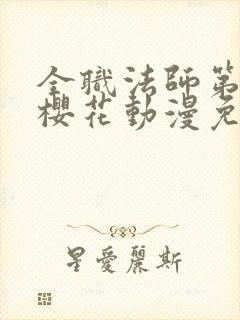 全職法師第
櫻花動漫免
星愛麗斯